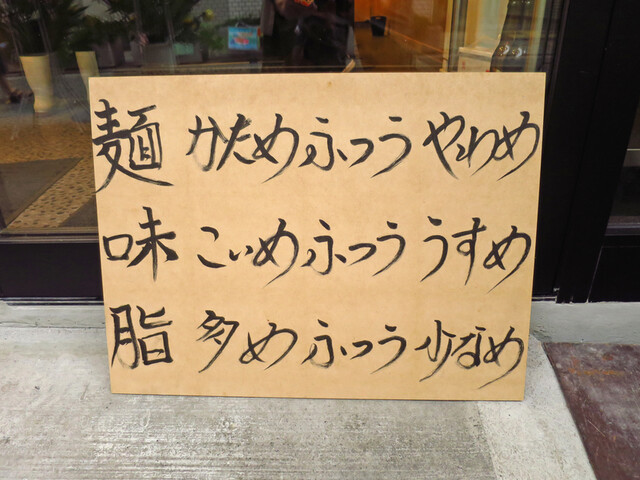 麺 かため ふつう やわめ
味 こいめ ふつう うすめ
脂 多め ふつう 少なめ